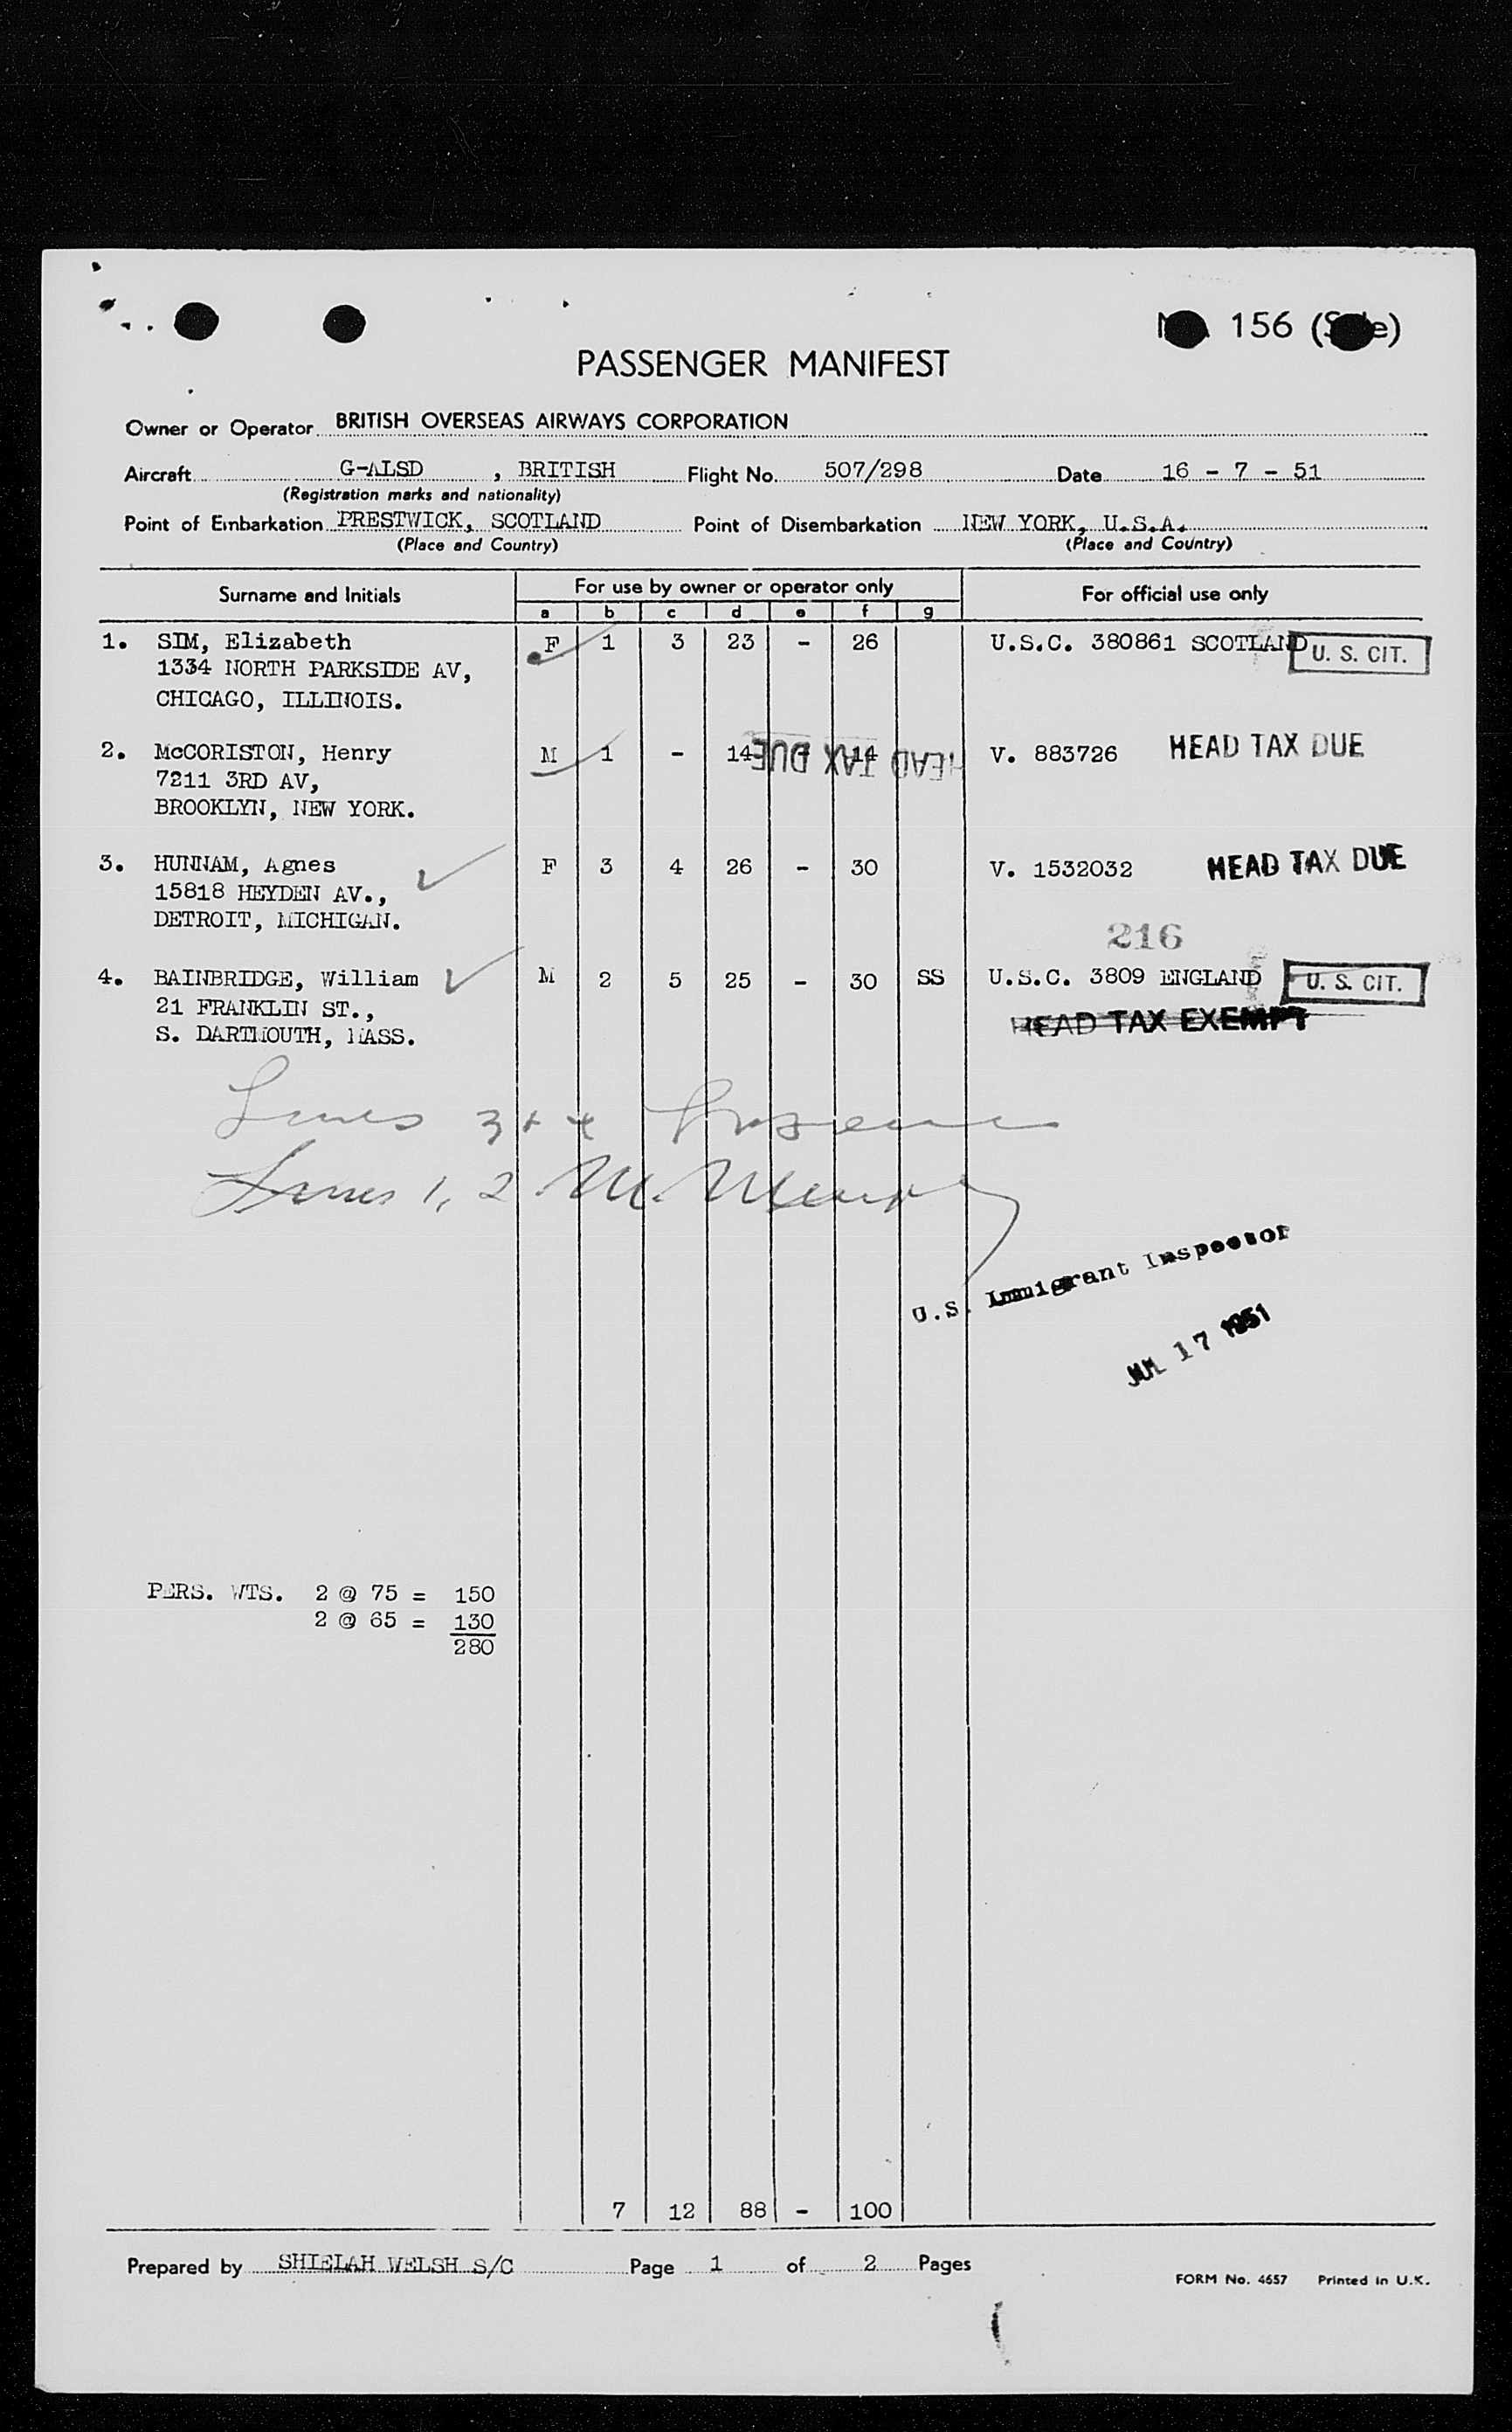 156
PASSENGER MANIFEST
Owner or Operator BRITISH OVERSEAS AIRWAYS CORPORATION
Aircraft G-ALSD , BRITISH Flight No. 507/298 Date 16 - 7 - 51
(Registration marks and nationality)
Point of Embarkation PRESTWICK, SCOTLAND Point of Disembarkation NEW YORK, U.S.A.
(Place and Country) (Place and Country)
Surname and Initials For use by owner or operator only For official use only
a b c d e f g
1. SIM, Elizabeth F 1 3 23 - 26 U.S.C. 380861 SCOTLAND U. S. CIT.
1334 NORTH PARKSIDE AV,
CHICAGO, ILLINOIS.
2. McCORISTON, Henry M 1 - 14 - 14 HEAD TAX DUE V. 883726 HEAD TAX DUE
7211 3RD AV,
BROOKLYN, NEW YORK.
3. HUNNAM, Agnes F 3 4 26 - 30 V. 1532032 HEAD TAX DUE
15818 HEYDEN AV.,
DETROIT, MICHIGAN.
216
4. BAINBRIDGE, William M 2 5 25 - 30 SS U.S.C. 3809 ENGLAND U. S. CIT.
21 FRANKLIN ST.,
HEAD TAX EXEMPT
S. DARTMOUTH, MASS.
Lines 3 + 4
Lines 1, 2 M.
U.S. Immigrant Inspector
JUL 17 1951
PERS. WTS. 2 @ 75 = 150
2 @ 65 = 130
280
7 12 88 - 100
Prepared by SHIELAH WELSH S/C Page 1 of 2 Pages
FORM No. 4657 Printed in U.K.